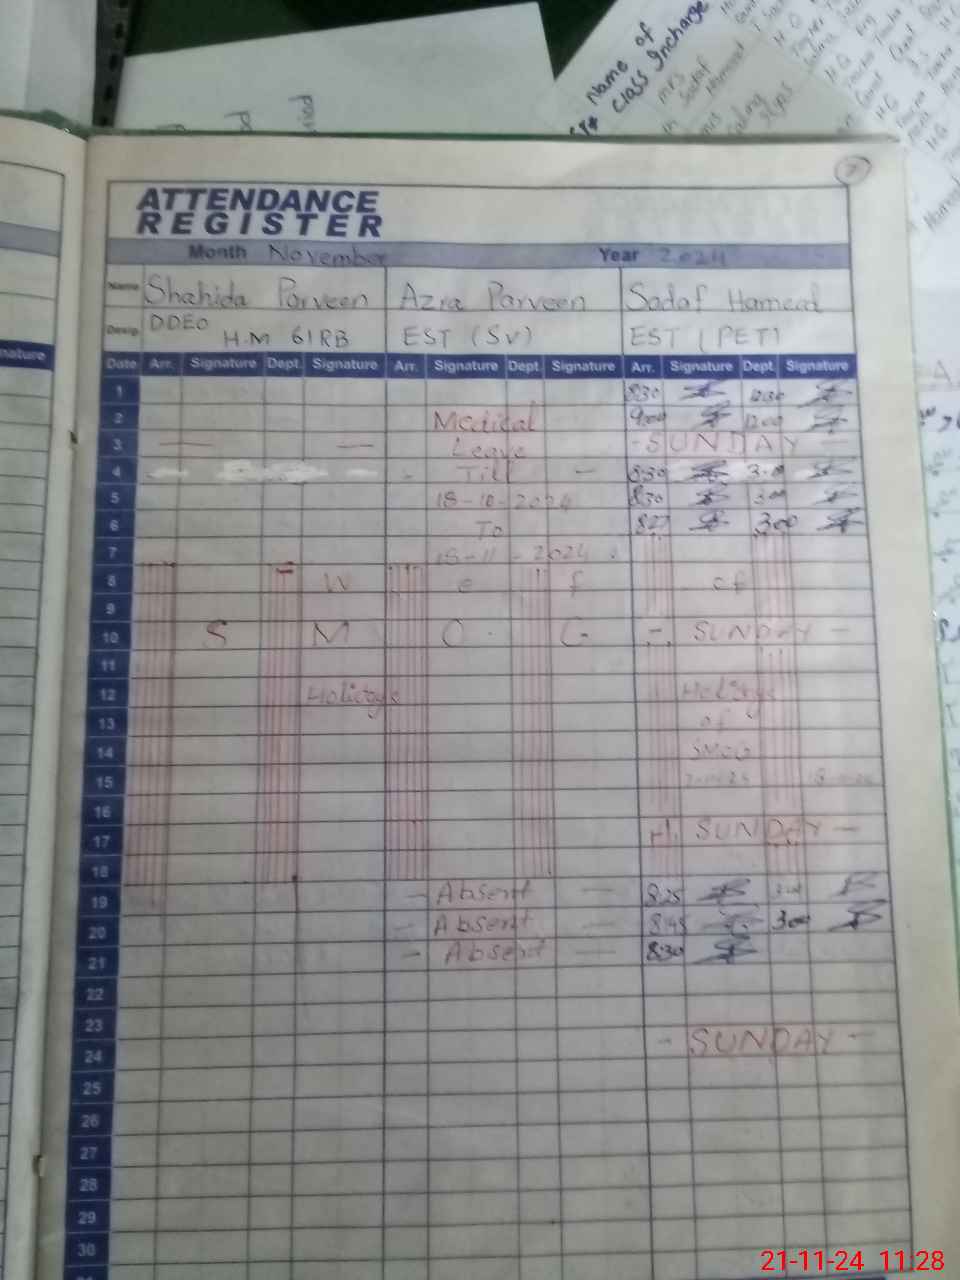 Name of
Class Incharge
Mrs
Sadaf
Hameed
ATTENDANCE
REGISTER
Month November Year 2024
Name Shahida Parveen Azra Parveen Sadaf Hameed
Desig. DDEO H.M 61RB EST (SV) EST (PET)
nature
Date Arr. Signature Dept. Signature Arr. Signature Dept. Signature Arr. Signature Dept. Signature
1 8:30 12:30
2 Medical 9:00 12:00
3 Leave - SUNDAY -
4 - Till - 8:30 3:00
5 18-10-2024 8:30 3:00
6 To 8:27 3:00
7 18-11-2024.
8 W e f of
9
10 S M O G - SUNDAY -
11
12 Holidays Holidays
13 of
14 SMOG
15
16
17 SUNDAY -
18
19 - Absent - 8:25
20 - Absent - 8:45 3:00
21 - Absent - 8:30
22
23
24 - SUNDAY -
25
26
27
28
29
30
21-11-24 11:28